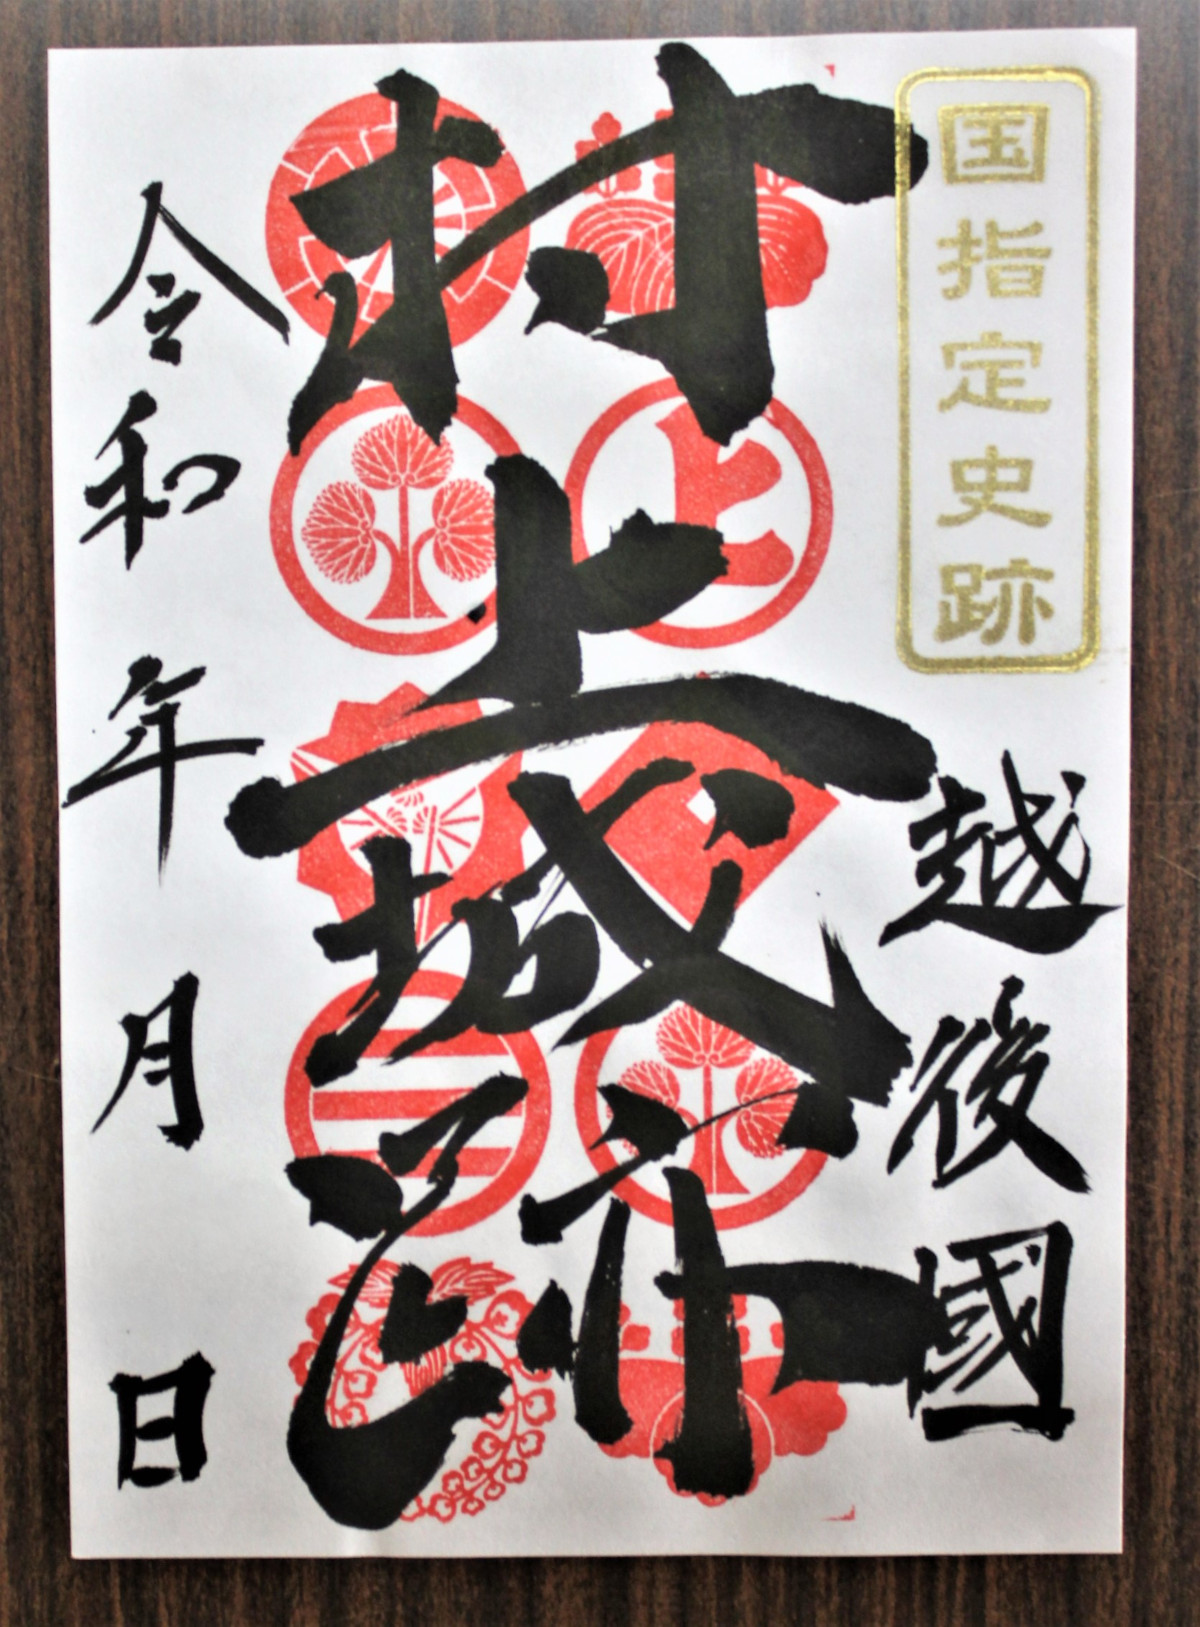 国指定史跡
越後國
村上城跡
令和 年 月 日
上